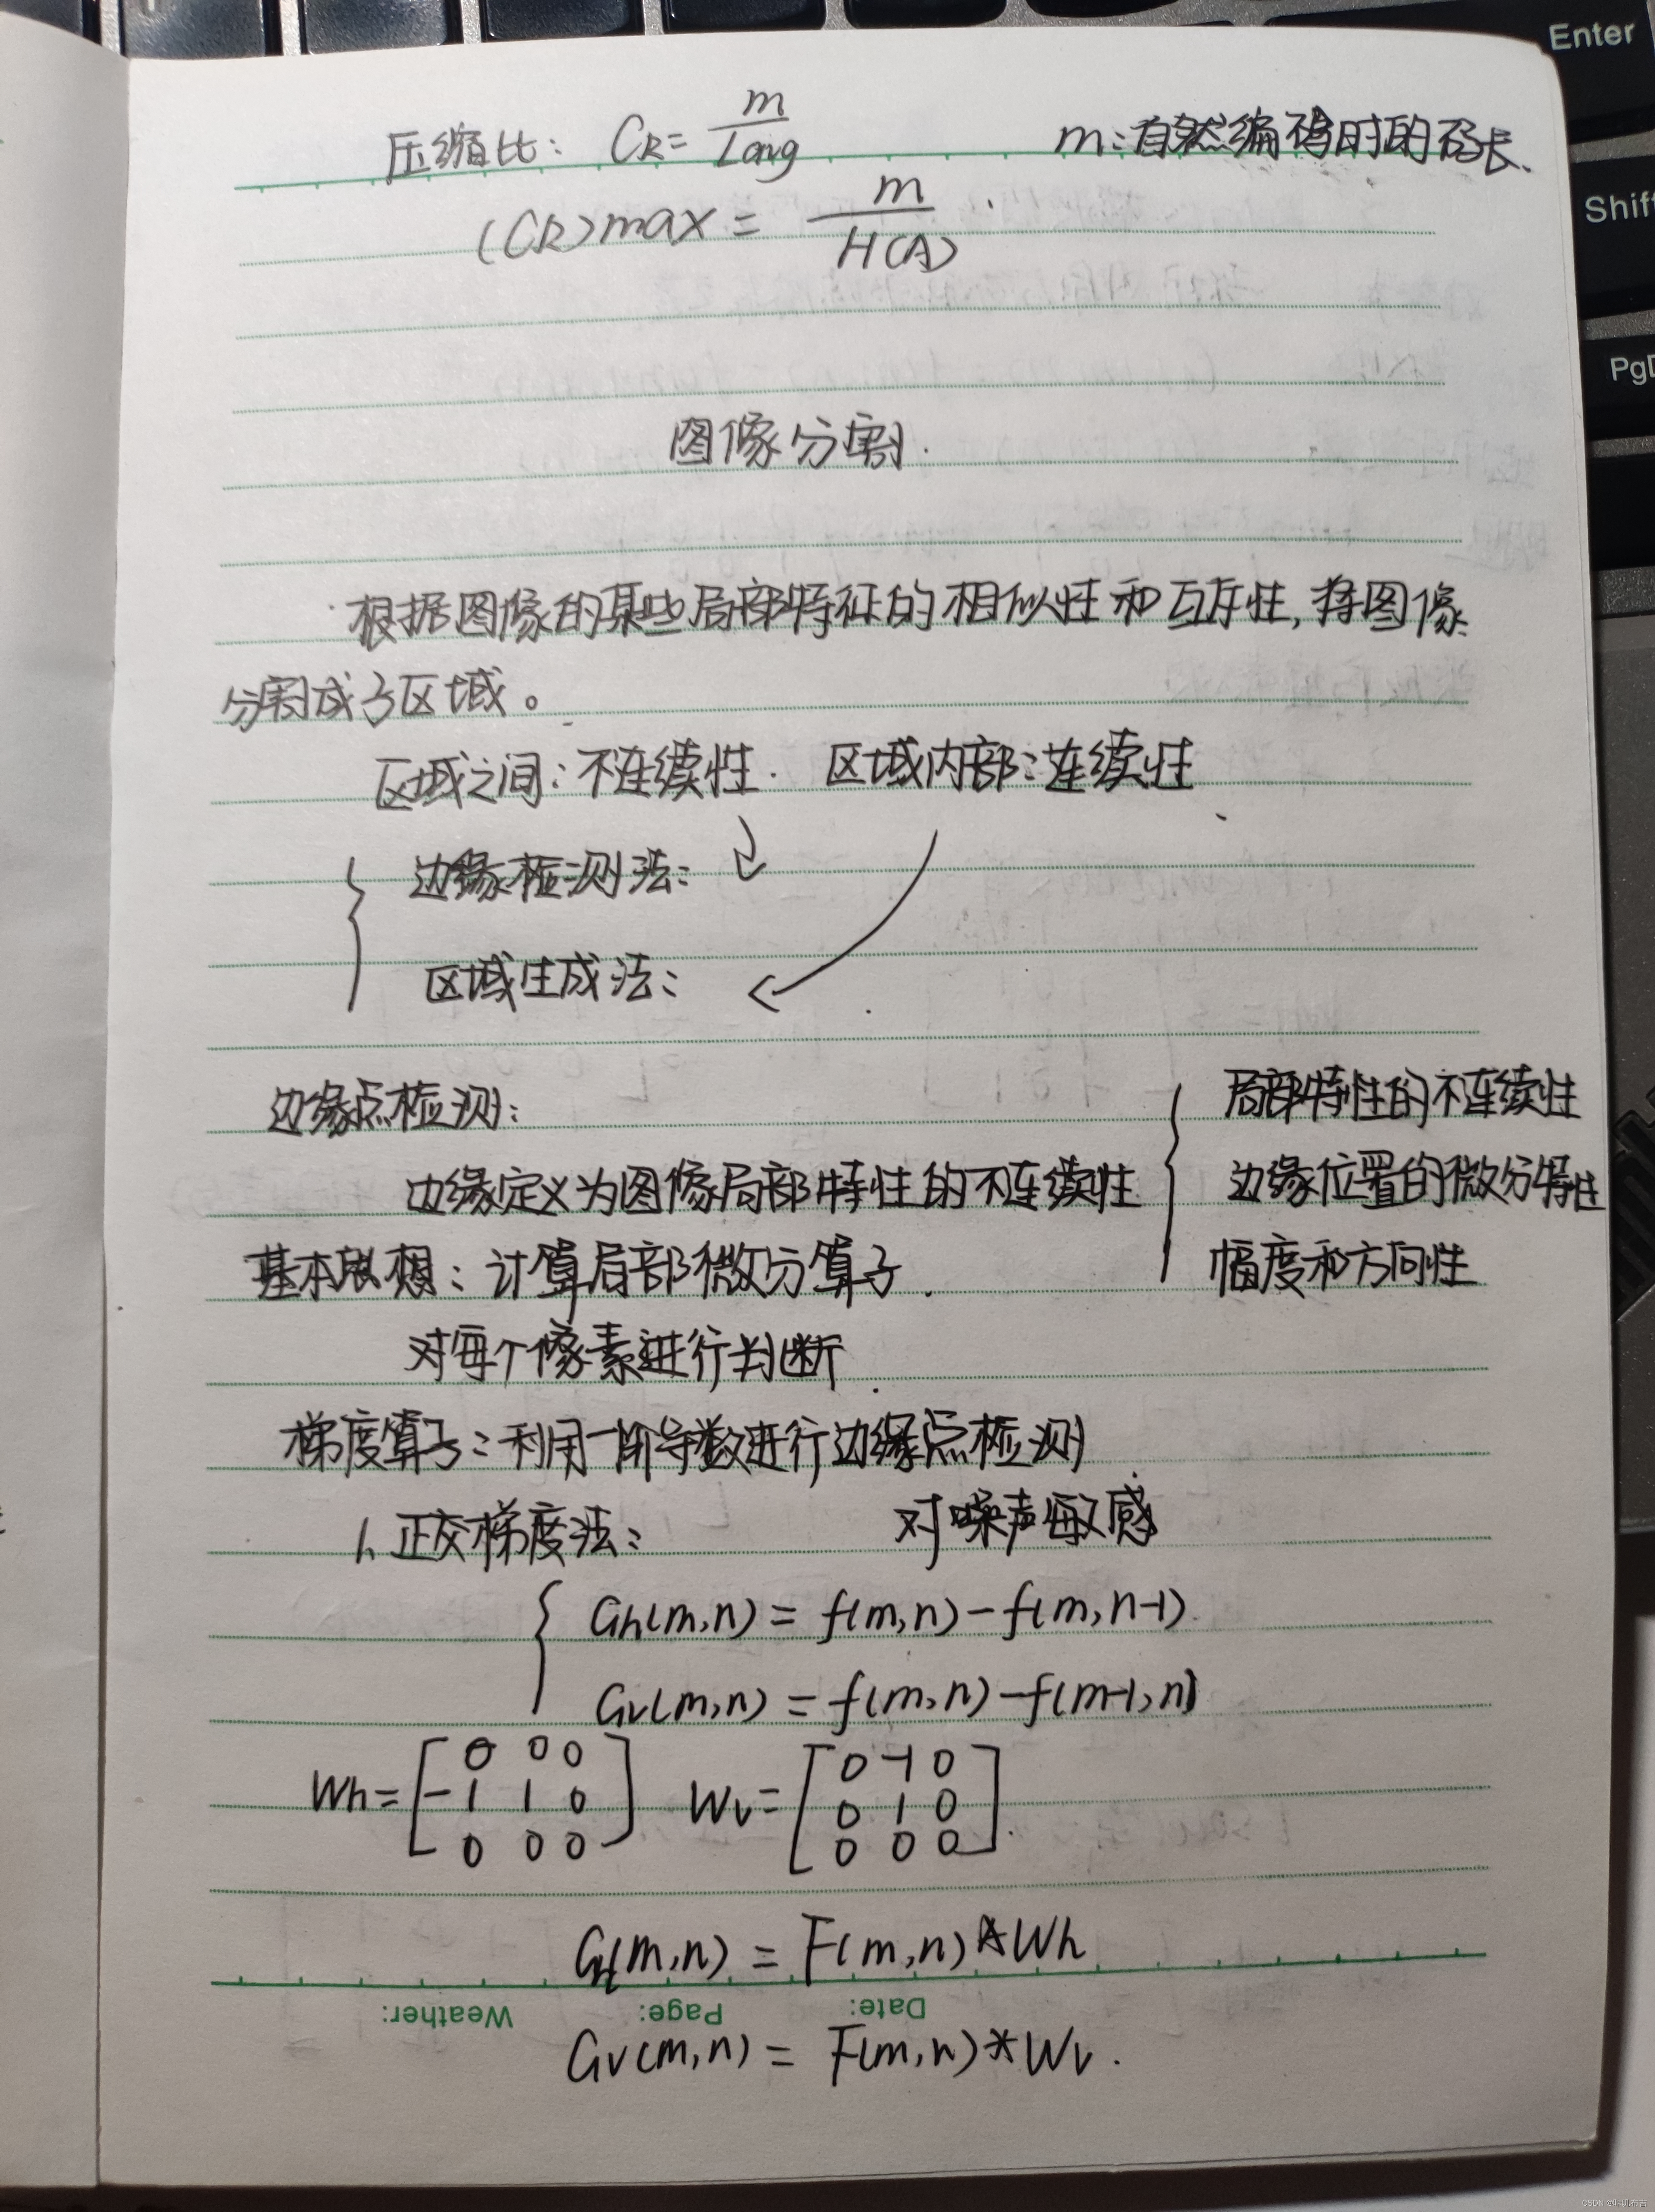 压缩比: CR= m/Long m:自然编码时的码长.
(CR)max = m/H(A)
图像分割.
根据图像的某些局部特征的相似性和互斥性,将图像
分割成子区域。
区域之间:不连续性. 区域内部:连续性
边缘检测法:
区域生成法:
边缘点检测:
边缘定义为图像局部特性的不连续性
局部特性的不连续性
边缘位置的微分特性
幅度和方向性
基本思想:计算局部微分算子.
对每个像素进行判断.
梯度算子:利用一阶导数进行边缘点检测
1.正交梯度法: 对噪声敏感
Gh(m,n) = f(m,n)-f(m,n-1)
Gv(m,n) = f(m,n)-f(m-1,n)
Wh= [0 0 0 Wv= [0 -1 0
-1 1 0 0 1 0
0 0 0] 0 0 0].
GH(m,n) = F(m,n)*Wh
Weather: Page: Date:
Gv(m,n) = F(m,n)*Wv.
Enter
Shift